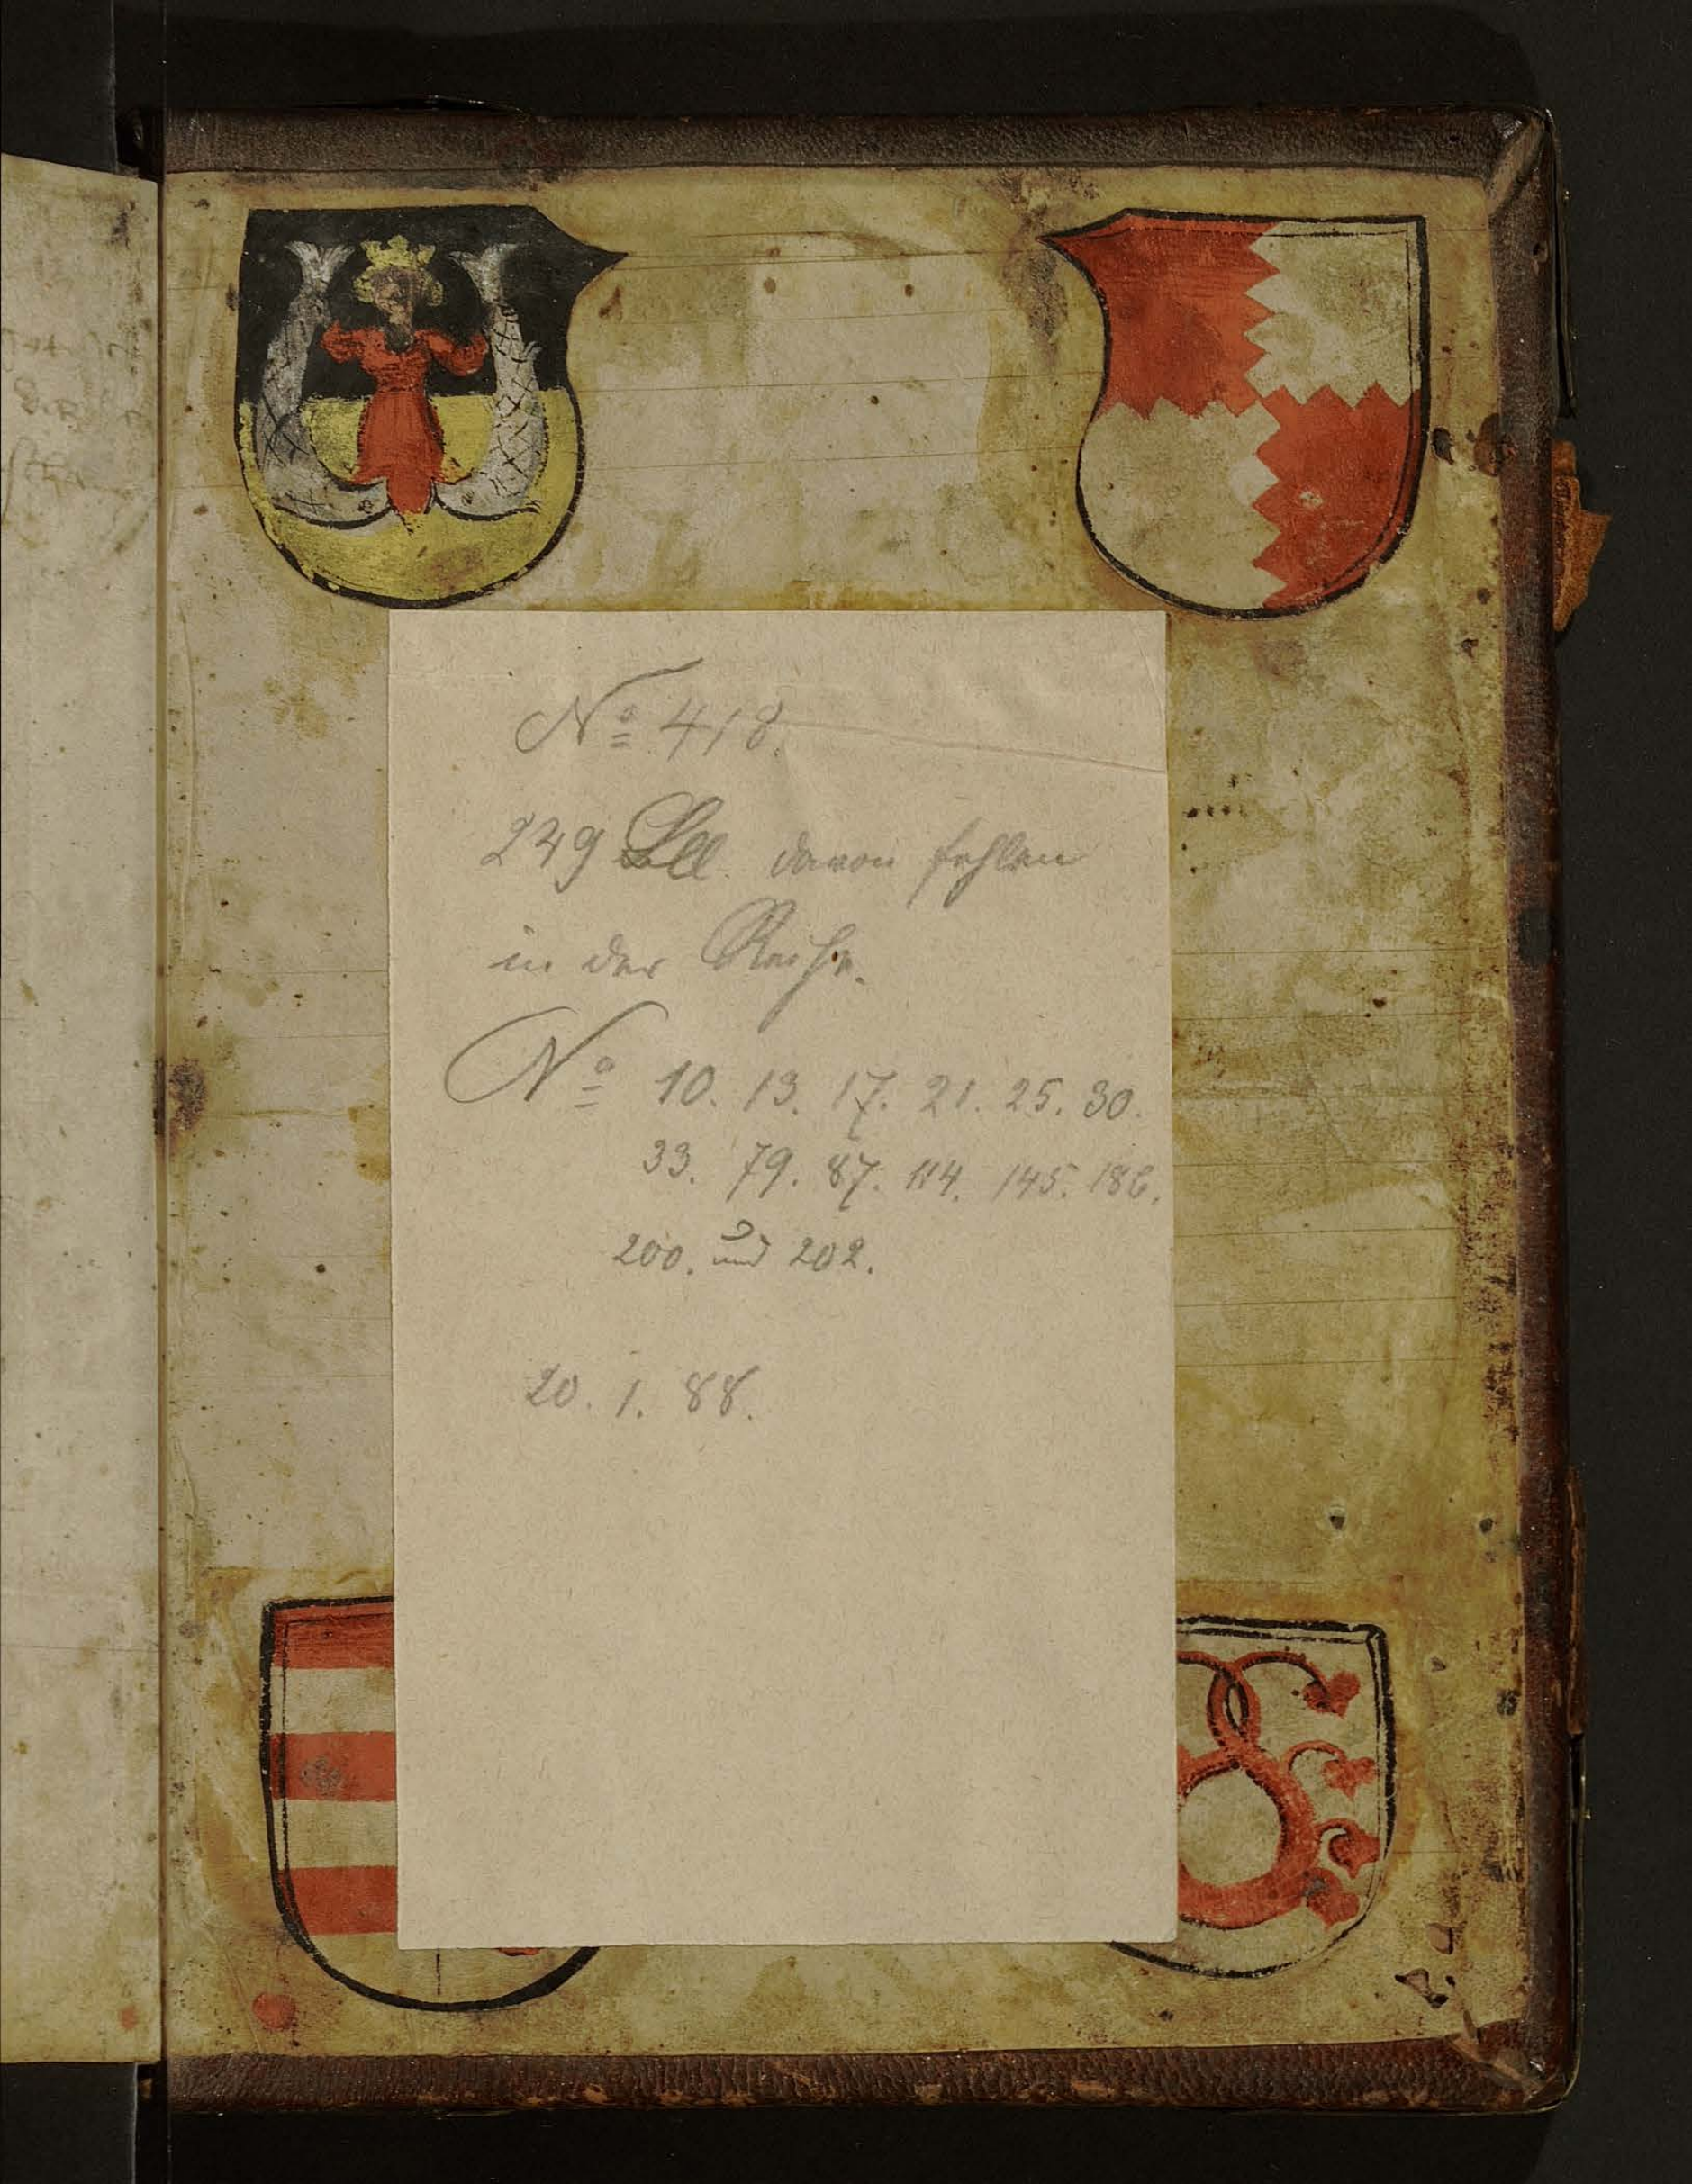 Nº 418.
249 Bll. davon fehlen
in der Reihe.
Nº 10. 13. 17. 21. 25. 30.
33. 79. 87. 114. 145. 186.
200. und 202.
20. 1. 88.